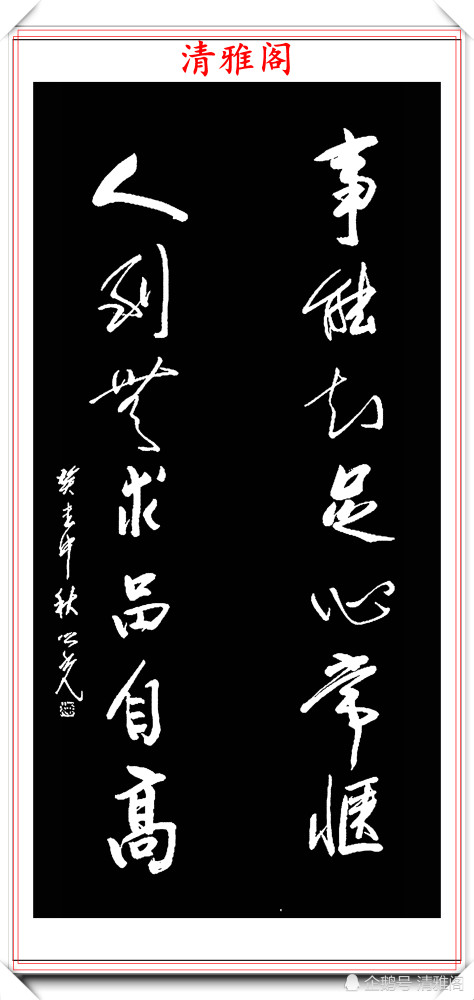 清雅阁
事能知足心常惬
人到无求品自高
癸未中秋
企鹅号 清雅阁